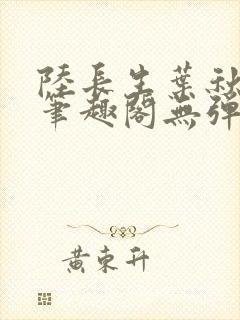 陸長生葉秋
筆趣閣無彈
黃東升